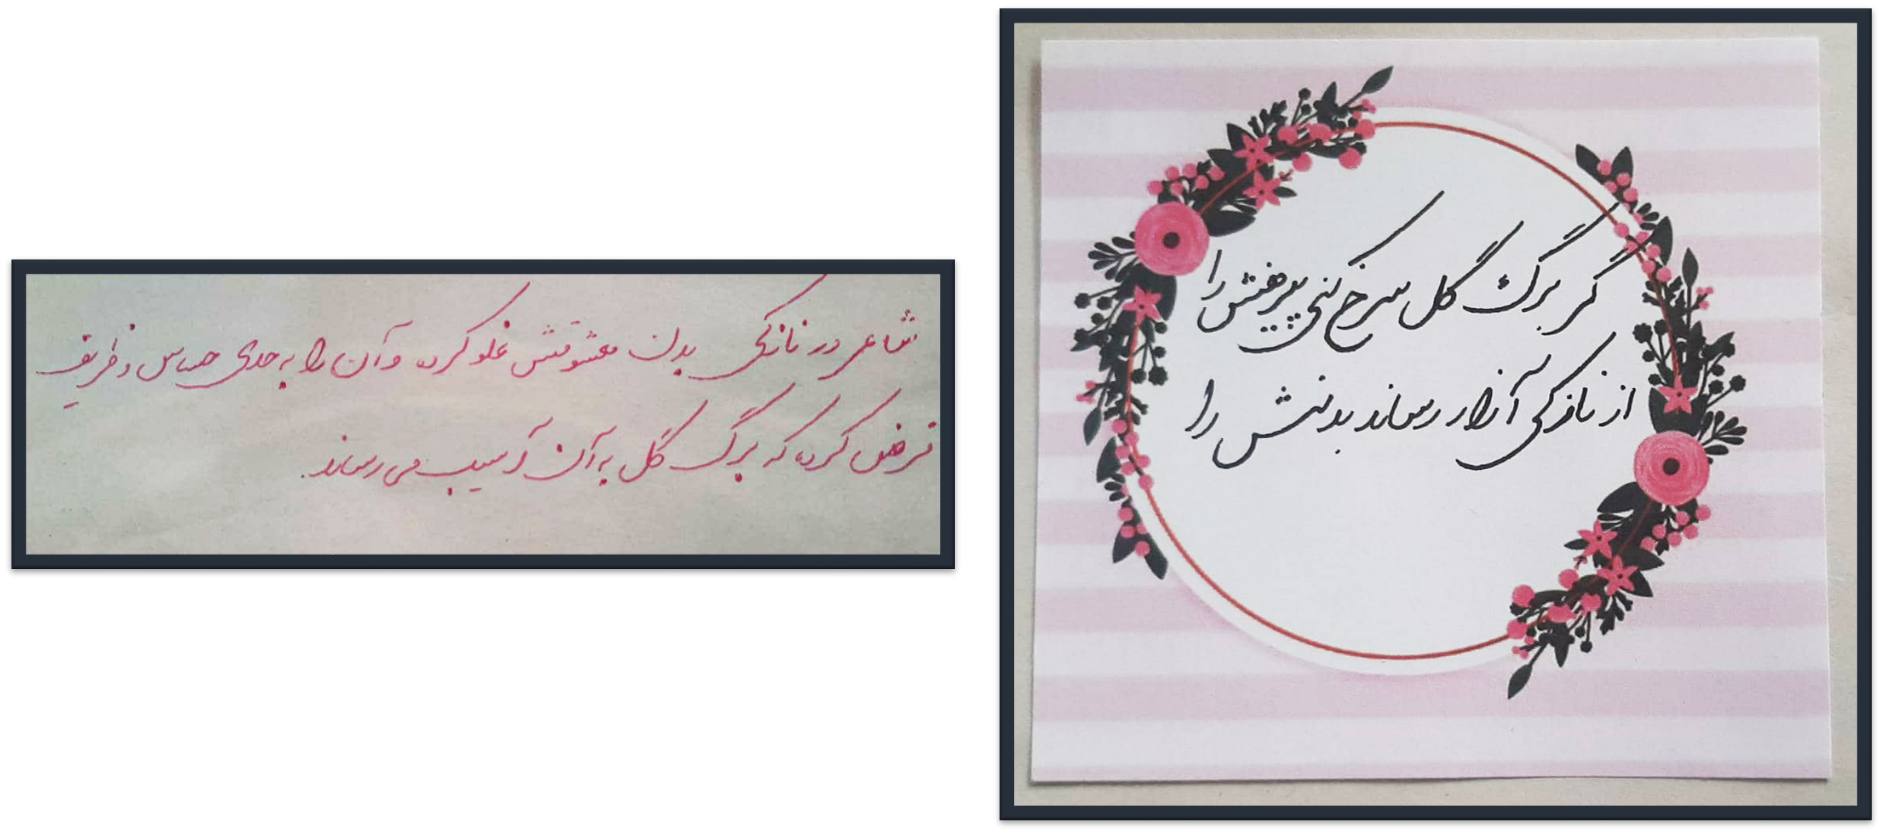 گر برگ گل سرخ کنی پیرهنش را
از نازکی آزار رساند بدنش را
شاعر در نازکی بدن معشوقش غلو کرده و آن را به حدی حساس و ظریف
فرض کرده که برگ گل به آن آسیب می رساند.